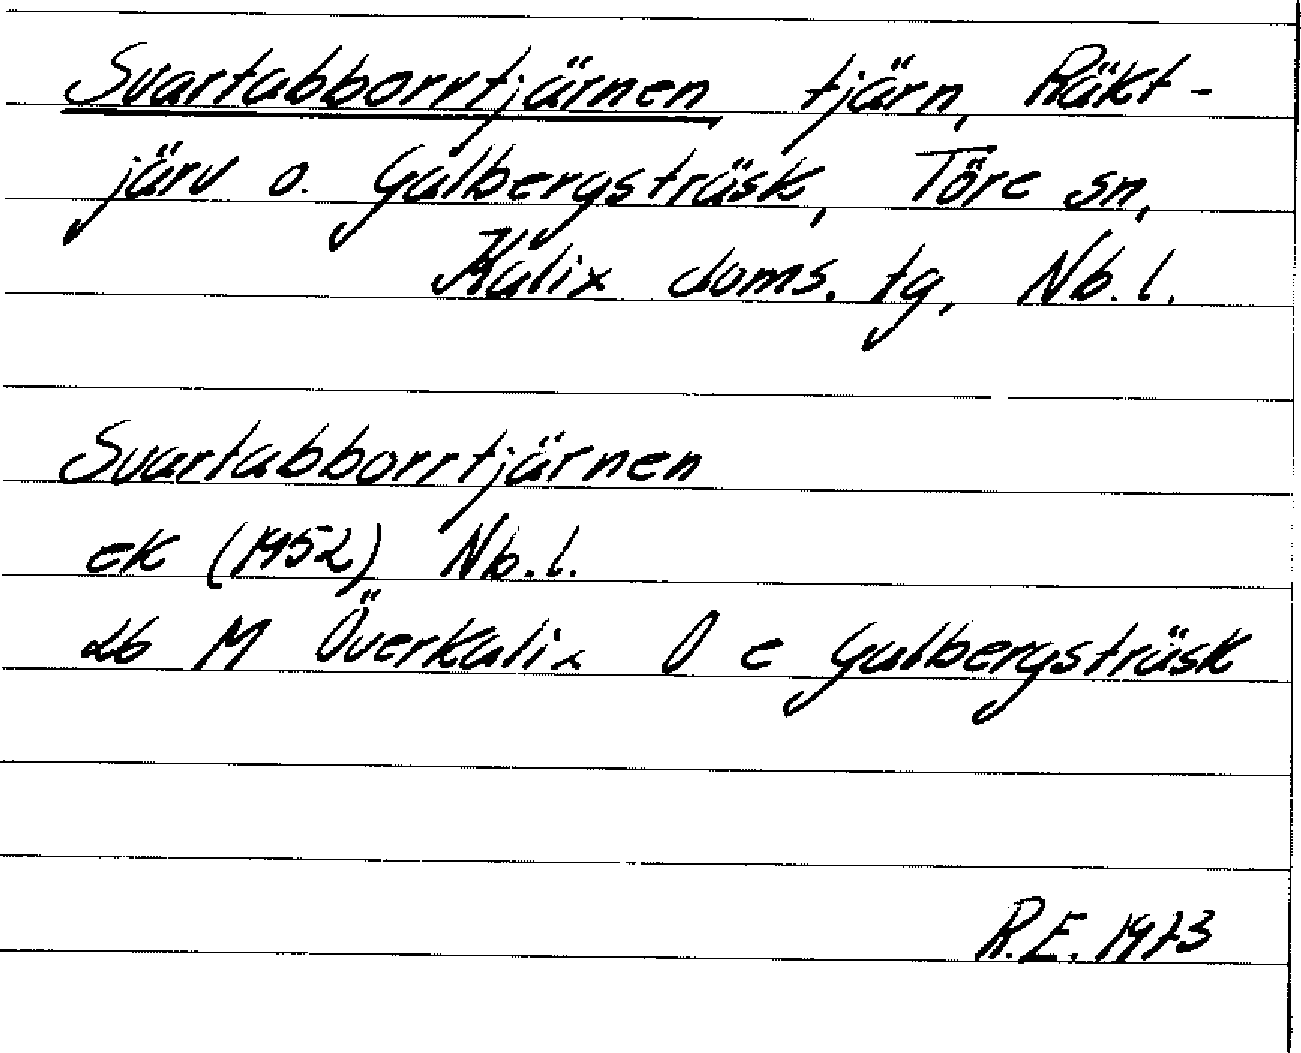 Svartabborrtjärnen tjärn, Räkt-
järv o. Galbergsträsk, Töre sn,
Kalix doms. tg, Nb. l.
Svartabborrtjärnen
ek (1952) Nb. l.
26 M Överkalix O e Galbergsträsk
R.E. 1973